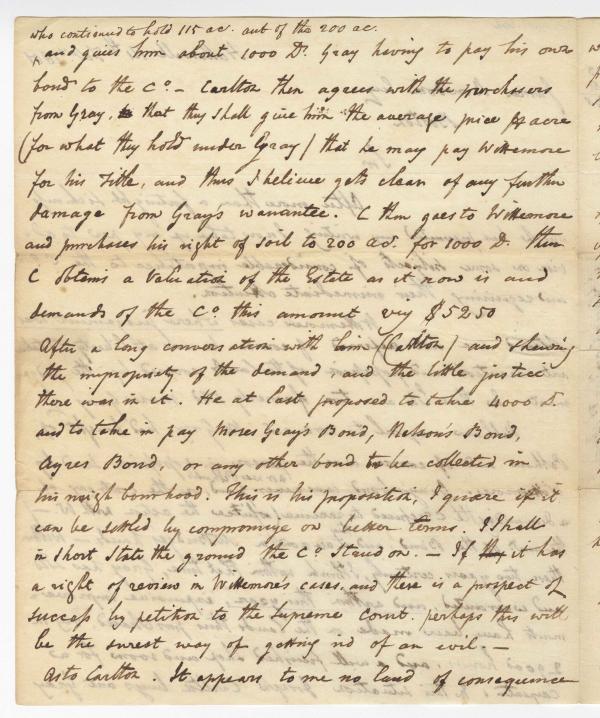 who continued to hold 115 ac. out of the 200 ac.
^ and gives him about 1000 D. Gray having to pay his own
bond to the Co. – Carlton then agrees with the purchasers
from Gray, that they shall give him the average price pr acre
(for what they hold under Gray) that he may pay Wittemore
for his Title, and thus I believe gets clear of any further
damage from Gray's warrantee. C then goes to Wittemore
and purchases his right of soil to 200 ac. for 1000 D. then
C obtains a valuation of the Estate as it now is and
demands of the Co. this amount viz $5250
After a long conversation with him (Carlton) and shewing
the impropriety of the demand, and the little justice
there was in it. He at last proposed to take 4000 D.
and to take in pay Moses Gray's Bond, Nelson's Bond,
Ayres Bond, or any other bond to be collected in
his neighbourhood. This is his proposition, I quaere if it
can be settled by compromise on better terms. I shall
in short State the ground the Co. Stand on. – If it has
a right of review in Wittemore's cases, and there is a prospect of
success by petition to the Supreme Court. perhaps this will
be the surest way of getting rid of an evil. –
As to Carlton. It appears to me no land of consequence